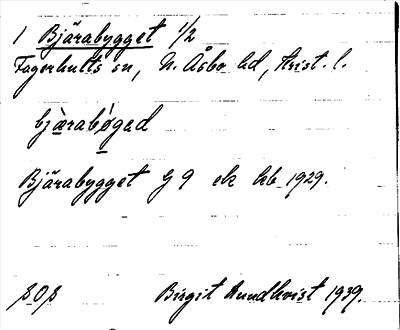 1 Bjärabygget 1/2
Fagerhults sn, N. Åsbo hd, Krist. l.
bjàrabǿgad
Bjärabygget G 9 ek kb 1929.
Birgit Sundkvist 1939.